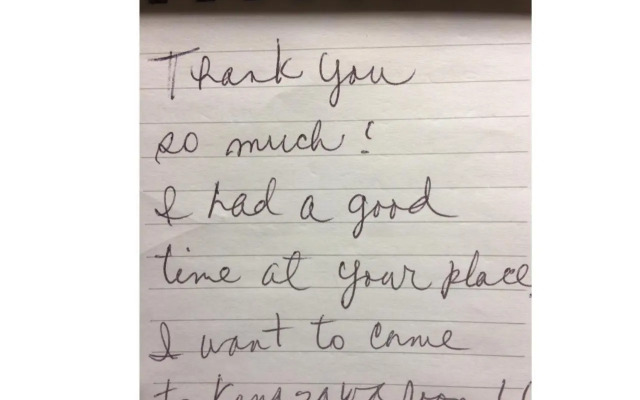 Thank you
so much!
I had a good
time at your place
I want to come
to Kanazawa